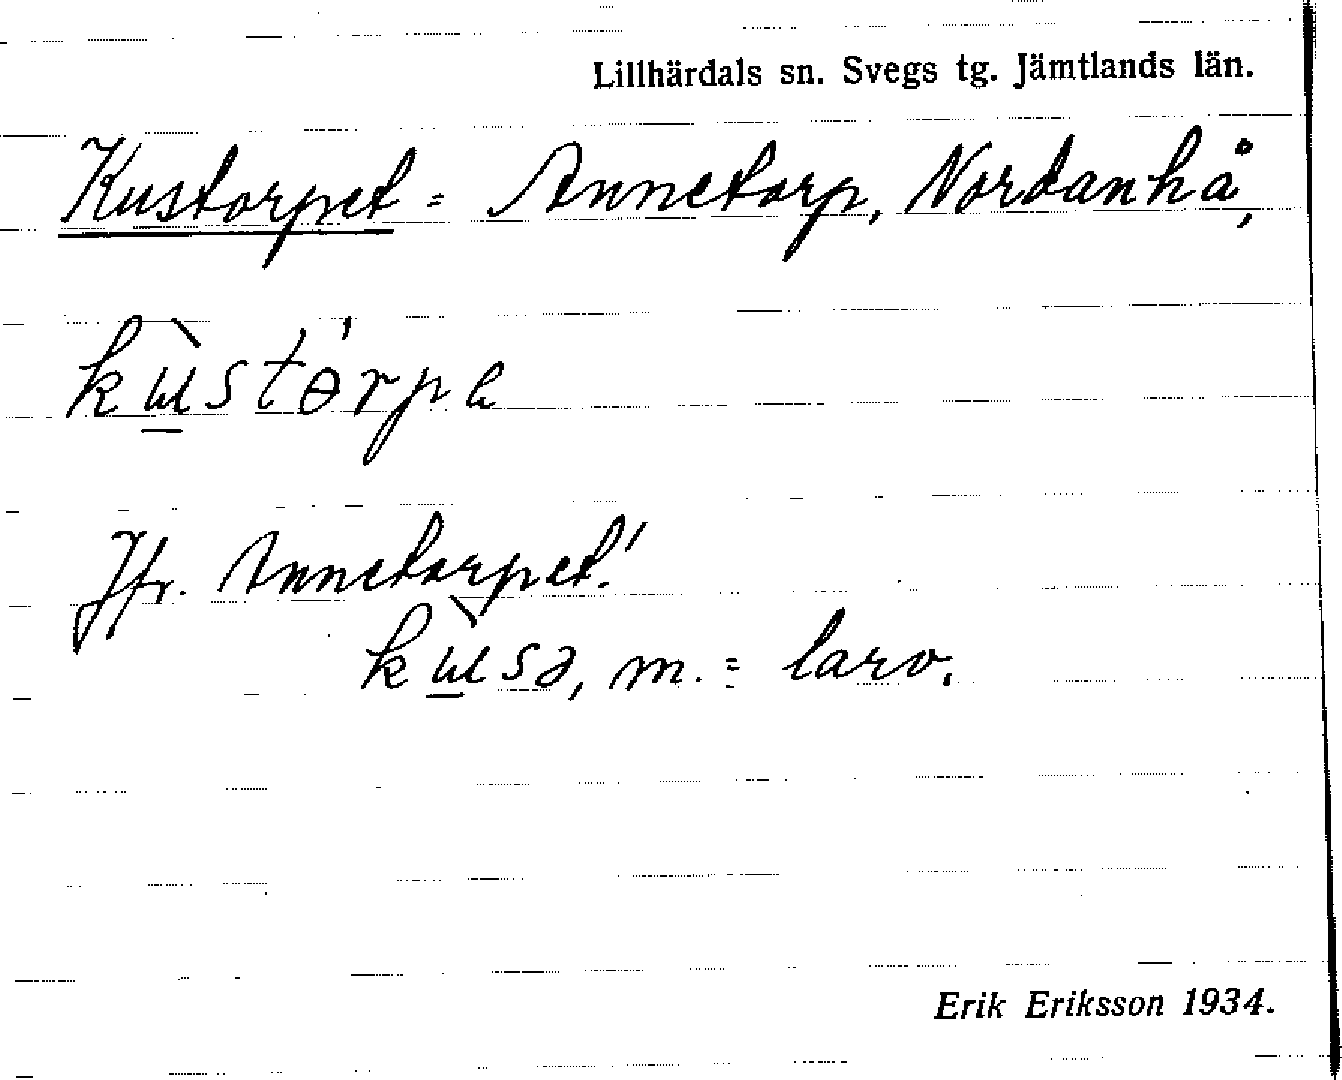 Lillhärdals sn. Svegs tg. Jämtlands län.
Kustorpet = Annetorp, Nordanhå,
kùstörpe
Jfr. Annetorpet!
kùsə, m. = larv.
Erik Eriksson 1934.